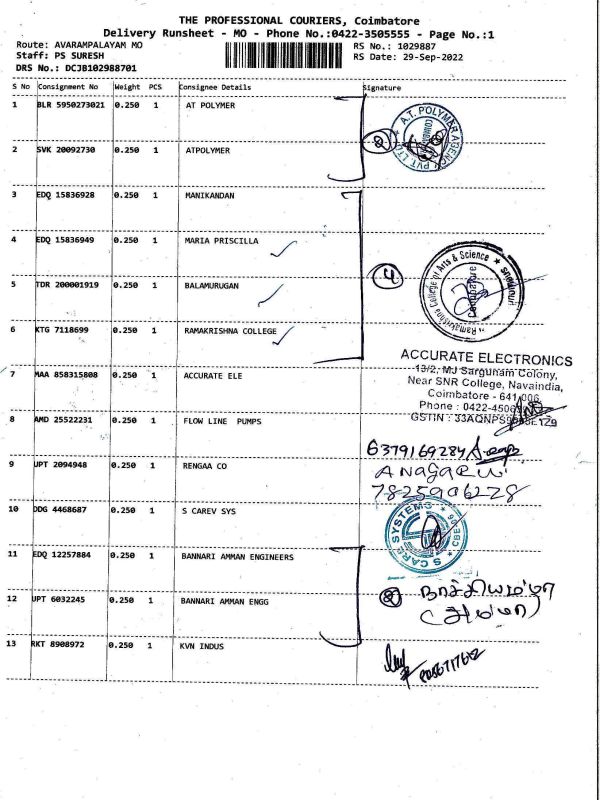 THE PROFESSIONAL COURIERS, Coimbatore
Delivery Runsheet - MO - Phone No.:0422-3505555 - Page No.:1
Route: AVARAMPALAYAM MO RS No.: 1029887
Staff: PS SURESH RS Date: 29-Sep-2022
DRS No.: DCJB102988701
S No Consignment No Weight PCS Consignee Details Signature
1 BLR 5950273021 0.250 1 AT POLYMER
A.T. POLYMER AGENCY PVT. LTD
2
2 SVK 20092730 0.250 1 ATPOLYMER
3 EDQ 15836928 0.250 1 MANIKANDAN
4 EDQ 15836949 0.250 1 MARIA PRISCILLA
4
Ramakrishna College of Arts & Science
Coimbatore
5 TDR 200001919 0.250 1 BALAMURUGAN
6 KTG 7118699 0.250 1 RAMAKRISHNA COLLEGE
ACCURATE ELECTRONICS
13/2, MJ Sargunam Colony,
Near SNR College, Navaindia,
Coimbatore - 641 006
Phone : 0422-4506
GSTIN : 33AQNPS
7 MAA 858315808 0.250 1 ACCURATE ELE
8 AMD 25522231 0.250 1 FLOW LINE PUMPS
6379169284
9 UPT 2094948 0.250 1 RENGAA CO
7825906228
10 DDG 4468687 0.250 1 S CAREV SYS
S CARE SYSTEMS
11 EDQ 12257884 0.250 1 BANNARI AMMAN ENGINEERS
2 நாச்சியம்மா
(அம்மா)
12 UPT 6032245 0.250 1 BANNARI AMMAN ENGG
13 RKT 8908972 0.250 1 KVN INDUS